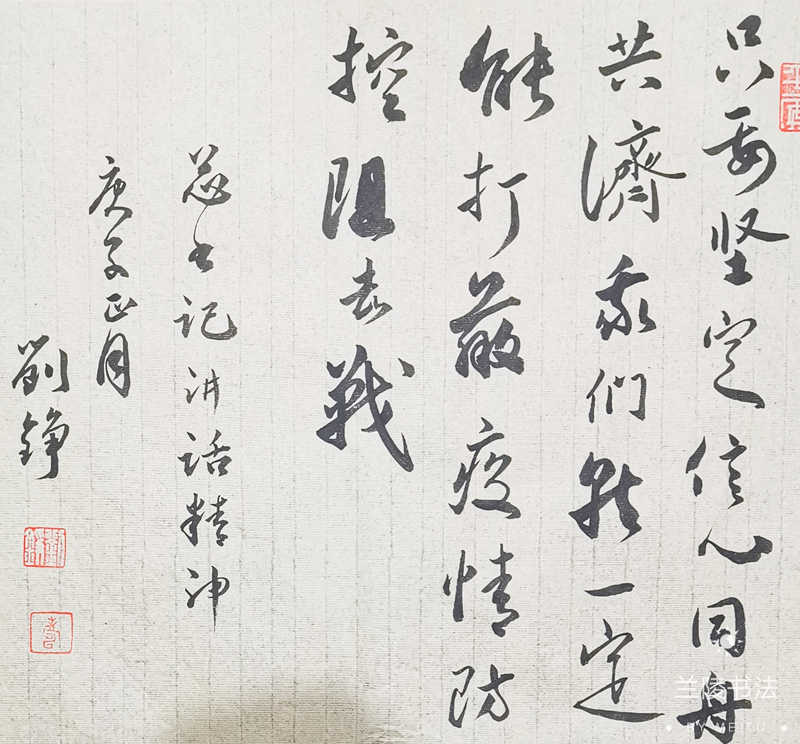 只要坚定信心同舟
共濟我们就一定
能打赢疫情防
控阻击战
总书记讲话精神
庚子正月
劉錚
兰陵书法
BY MEITU